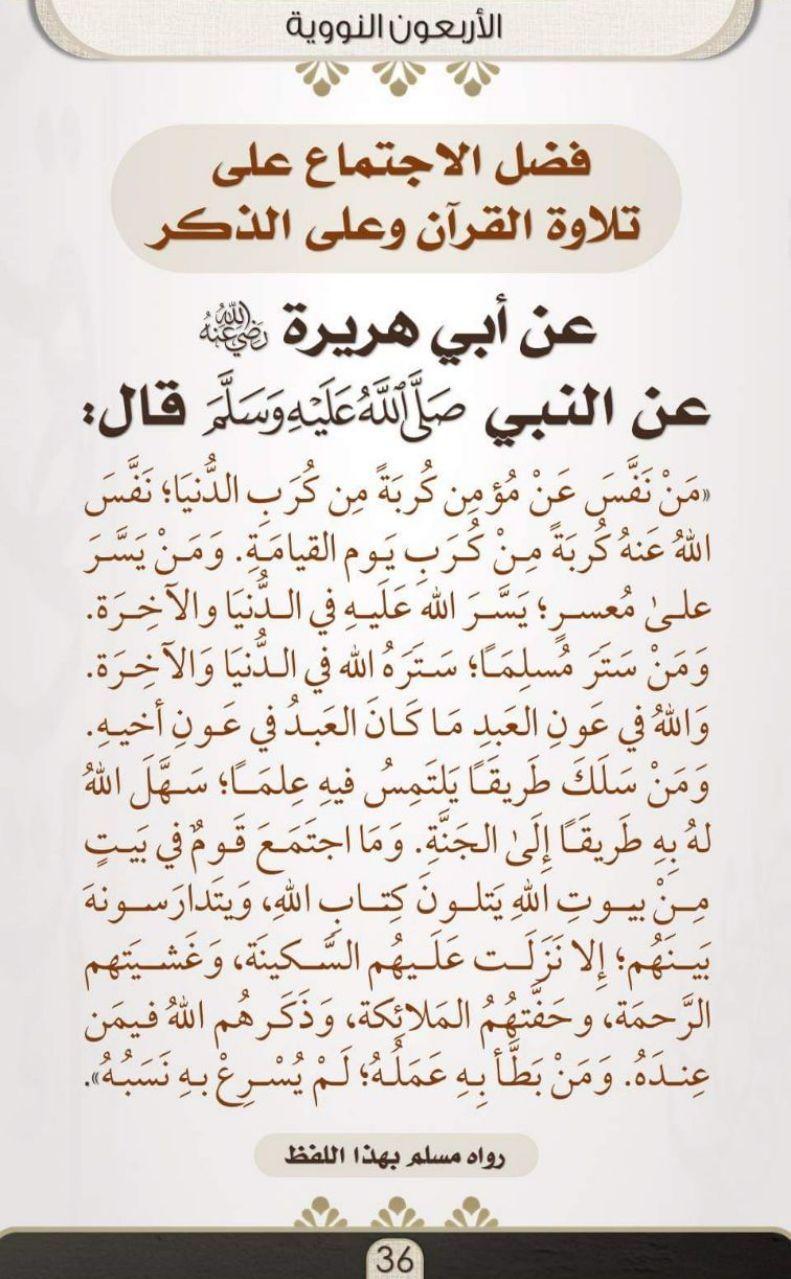 الأربعون النووية
فضل الاجتماع على
تلاوة القرآن وعلى الذكر
عن أبي هريرة رَضِيَ اللَّهُ عَنْهُ
عن النبي صَلَّى اللَّهُ عَلَيْهِ وَسَلَّمَ قال:
«مَنْ نَفَّسَ عَنْ مُؤمِن كُربَةً مِن كُرَبِ الدُّنيَا؛ نَفَّسَ
اللهُ عَنهُ كُربَةً مِنْ كُرَبِ يَوم القيامَةِ. وَمَنْ يَسَّرَ
علىٰ مُعسرٍ؛ يَسَّرَ الله عَلَيهِ في الدُّنيَا والآخِرَة.
وَمَنْ سَتَرَ مُسلِمَاً؛ سَتَرَهُ الله في الدُّنيَا وَالآخِرَة.
وَاللهُ في عَونِ العَبدِ مَا كَانَ العَبدُ في عَونِ أخيهِ.
وَمَنْ سَلَكَ طَريقَاً يَلتَمِسُ فيهِ عِلمَاً؛ سَهَّلَ اللهُ
لهُ بِهِ طَريقَاً إِلَىٰ الجَنَّةِ. وَمَا اجتَمَعَ قَومٌ في بَيتٍ
مِنْ بيوتِ اللهِ يَتلونَ كِتابِ اللهِ، وَيتَدارَسونهَ
بَينَهُم؛ إِلا نَزَلَت عَلَيهُم السَّكينَة، وَغَشيَتهم
الرَّحمَة، وحَفَّتهُمُ المَلائِكة، وَذَكَرهُم اللهُ فيمَن
عِندَهُ. وَمَنْ بَطَّأ بِهِ عَمَلُهُ؛ لَمْ يُسْرِعْ بهِ نَسَبُهُ».
رواه مسلم بهذا اللفظ
36